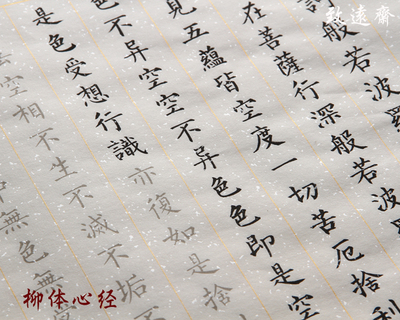 致遠齋
般若波羅
在菩薩行深般若波
見五蘊皆空度一切苦厄捨利
色不异空空不异色色即是空
是色受想行識亦復如是捨
空相不生不滅不垢不
中無色無
柳体心经